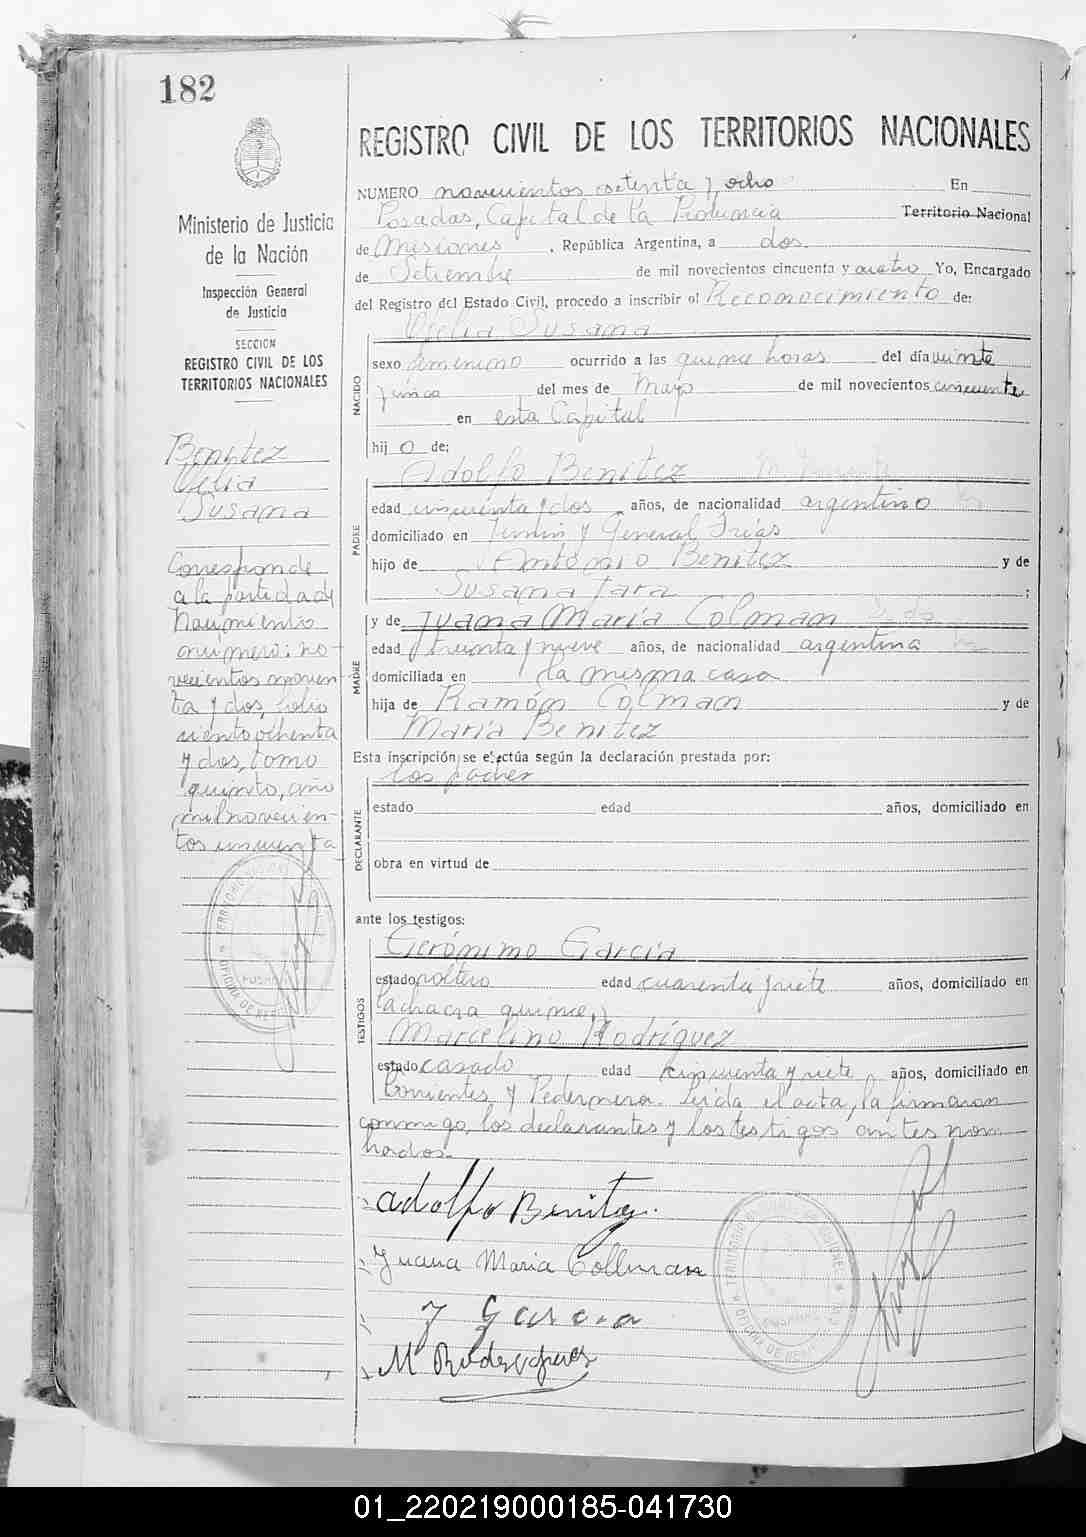 182
Ministerio de Justicia
de la Nación
Inspección General
de Justicia
SECCION
REGISTRO CIVIL DE LOS
TERRITORIOS NACIONALES
Benítez
Susana
Corresponde
a la partida de
nacimiento
número: no-
vecientos noven-
ta y dos, folio
ciento ochenta
y dos, tomo
quinto, año
mil novecien-
tos cincuenta
REGISTRO CIVIL DE LOS TERRITORIOS NACIONALES
NUMERO novecientos setenta y ocho En
Posadas, Capital de la Provincia Territorio Nacional
de Misiones, República Argentina, a dos
de Setiembre de mil novecientos cincuenta y cuatro Yo, Encargado
del Registro del Estado Civil, procedo a inscribir el Reconocimiento de:
Susana
NACIDO
sexo femenino ocurrido a las quince horas del día veinte
y cinco del mes de Mayo de mil novecientos cincuenta
en esta Capital
hij o de:
Adolfo Benítez
PADRE
edad cincuenta y dos años, de nacionalidad argentino
domiciliado en Junín y General Frías
hijo de Antonio Benítez y de
Susana Jara;
y de Juana María Colman
MADRE
edad treinta y nueve años, de nacionalidad argentina
domiciliada en la misma casa
hija de Ramón Colman y de
María Benítez
Esta inscripción se efectúa según la declaración prestada por:
los padres
DECLARANTE
estado edad años, domiciliado en
obra en virtud de
ante los testigos:
Gerónimo García
TESTIGOS
estado soltero edad cuarenta y siete años, domiciliado en
la chacra quince, y
Marcelino Rodríguez
estado casado edad cincuenta y siete años, domiciliado en
Corrientes y Pedernera. Leída el acta, la firmaron
conmigo, los declarantes y los testigos antes nom-
brados.-
Adolfo Benitez.
Juana Maria Collman
J Garcia
M Rodriguez
01_220219000185-041730